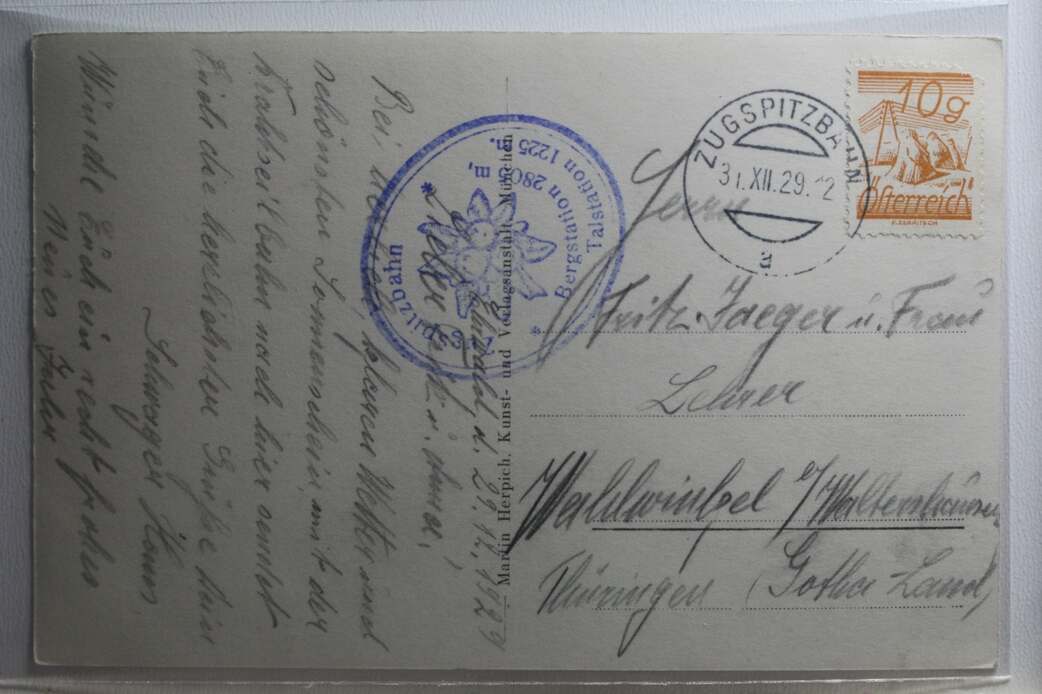 Ehrwald, d. 29.12.1929
Lieber Fritz u. Anna,
Bei herrlich klarem Wetter und
schönstem Sonnenschein, mit der
Drahtseilbahn nach hier sendet
Euch die herzlichsten Grüße Euer
Schwager Hans.
Wünsche Euch ein recht frohes
Neues Jahr
Zugspitzbahn
Bergstation 2805 m,
Talstation 1225 m.
— Martin Herpich, Kunst- und Verlagsanstalt, München
10g
Österreich
ZUGSPITZBAHN
31.XII.29.12
a
Herrn
Fritz Jaeger u. Frau
Lehrer
Wahlwinkel b/Waltershausen
Thüringen (Gotha Land)